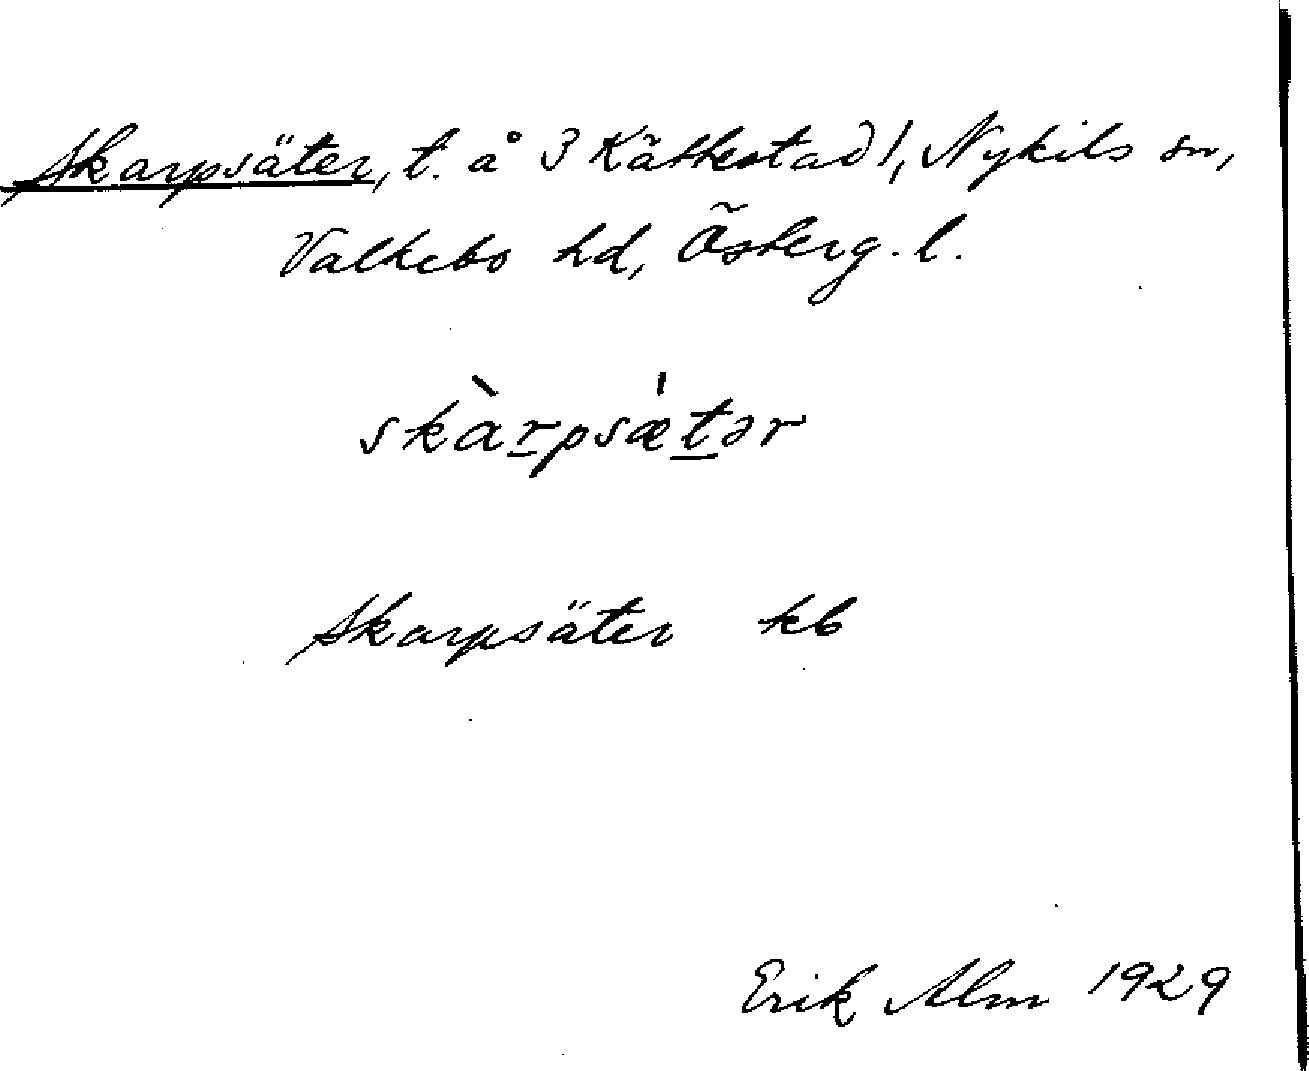 Skarpsäter, t. å 3 Kättestad 1, Nykils sn,
Valkebo hd, Österg. l.
skàrpsætər
Skarpsäter kb
Erik Alm 1929